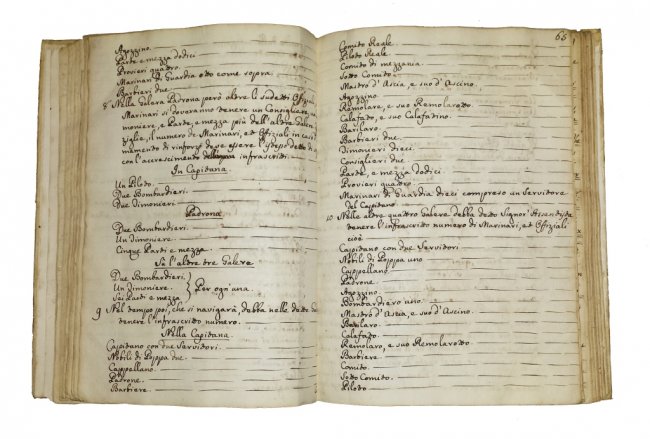 Agozzino.
Parte e mezza dodici
Provieri quattro.
Marinari di Guardia otto come sopra.
Barbieri due.
8 Nella Galera Padrona però oltre li sudetti Offiziali
Marinari si doveranno tenere un Consigliere, un
moniere, e Parte, e mezza più dell'altre Galere
ziglie, il numero de Marinari, et Offiziali in caso
namento di rinforzo deve essere l'istesso detto di
con l'accrescimento infrascritti.
In Capitana
Un Piloto.
Due Bombardieri.
Due Dimonieri.
Padrona
Due Bombardieri.
Un Dimoniere.
Cinque Parti e mezza.
Sù l'altre tre Galere
Due Bombardieri.
Un Dimoniere. Per ogn'una.
Sei Parti e mezza
9 Nel tempo poi, che si navigarà, debba nelle dette
tenere l'infrascritto numero.
Nella Capitana.
Capitano con due Servitori.
Nobili di Poppa due.
Cappellano.
Padrone.
Barbiere.
65
Comito Reale.
Piloto Reale.
Comito di mezzania.
Sotto Comito.
Mastro d'Ascia, e suo d'Ascino.
Agozzino.
Remolare, e suo Remolarotto.
Calafato, e suo Calafatino.
Barilaro.
Barbieri due.
Dimonieri dieci.
Consiglieri due.
Parte, e mezza dodici
Provieri quattro.
Marinari di Guardia dieci compreso un Servitore
del Capitano.
10 Nelle altre quattro Galere debba detto Signor Assentista
tenere l'infrascritto numero di Marinari, et Offiziali
cioè.
Capitano con due Servitori
Nobili di Poppa uno
Cappellano.
Padrone.
Agozzino.
Bombardiero uno.
Mastro d'Ascia, e suo d'Ascino.
Barilaro.
Calafato.
Remolaro, e suo Remolarotto
Barbiere.
Comito.
Sotto Comito.
Piloto